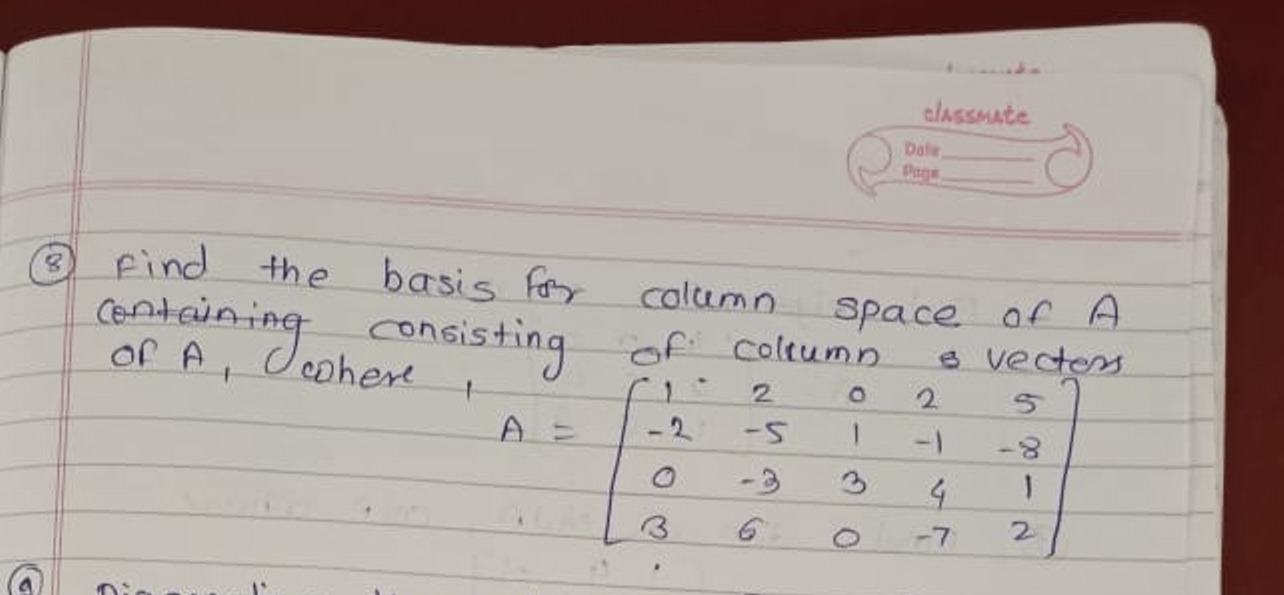 classmate
Date
Page
8 Find the basis for column space of A
containing consisting of column vectors
of A, where,
A = [ 1 2 0 2 5
-2 -5 1 -1 -8
0 -3 3 4 1
3 6 0 -7 2 ]
9